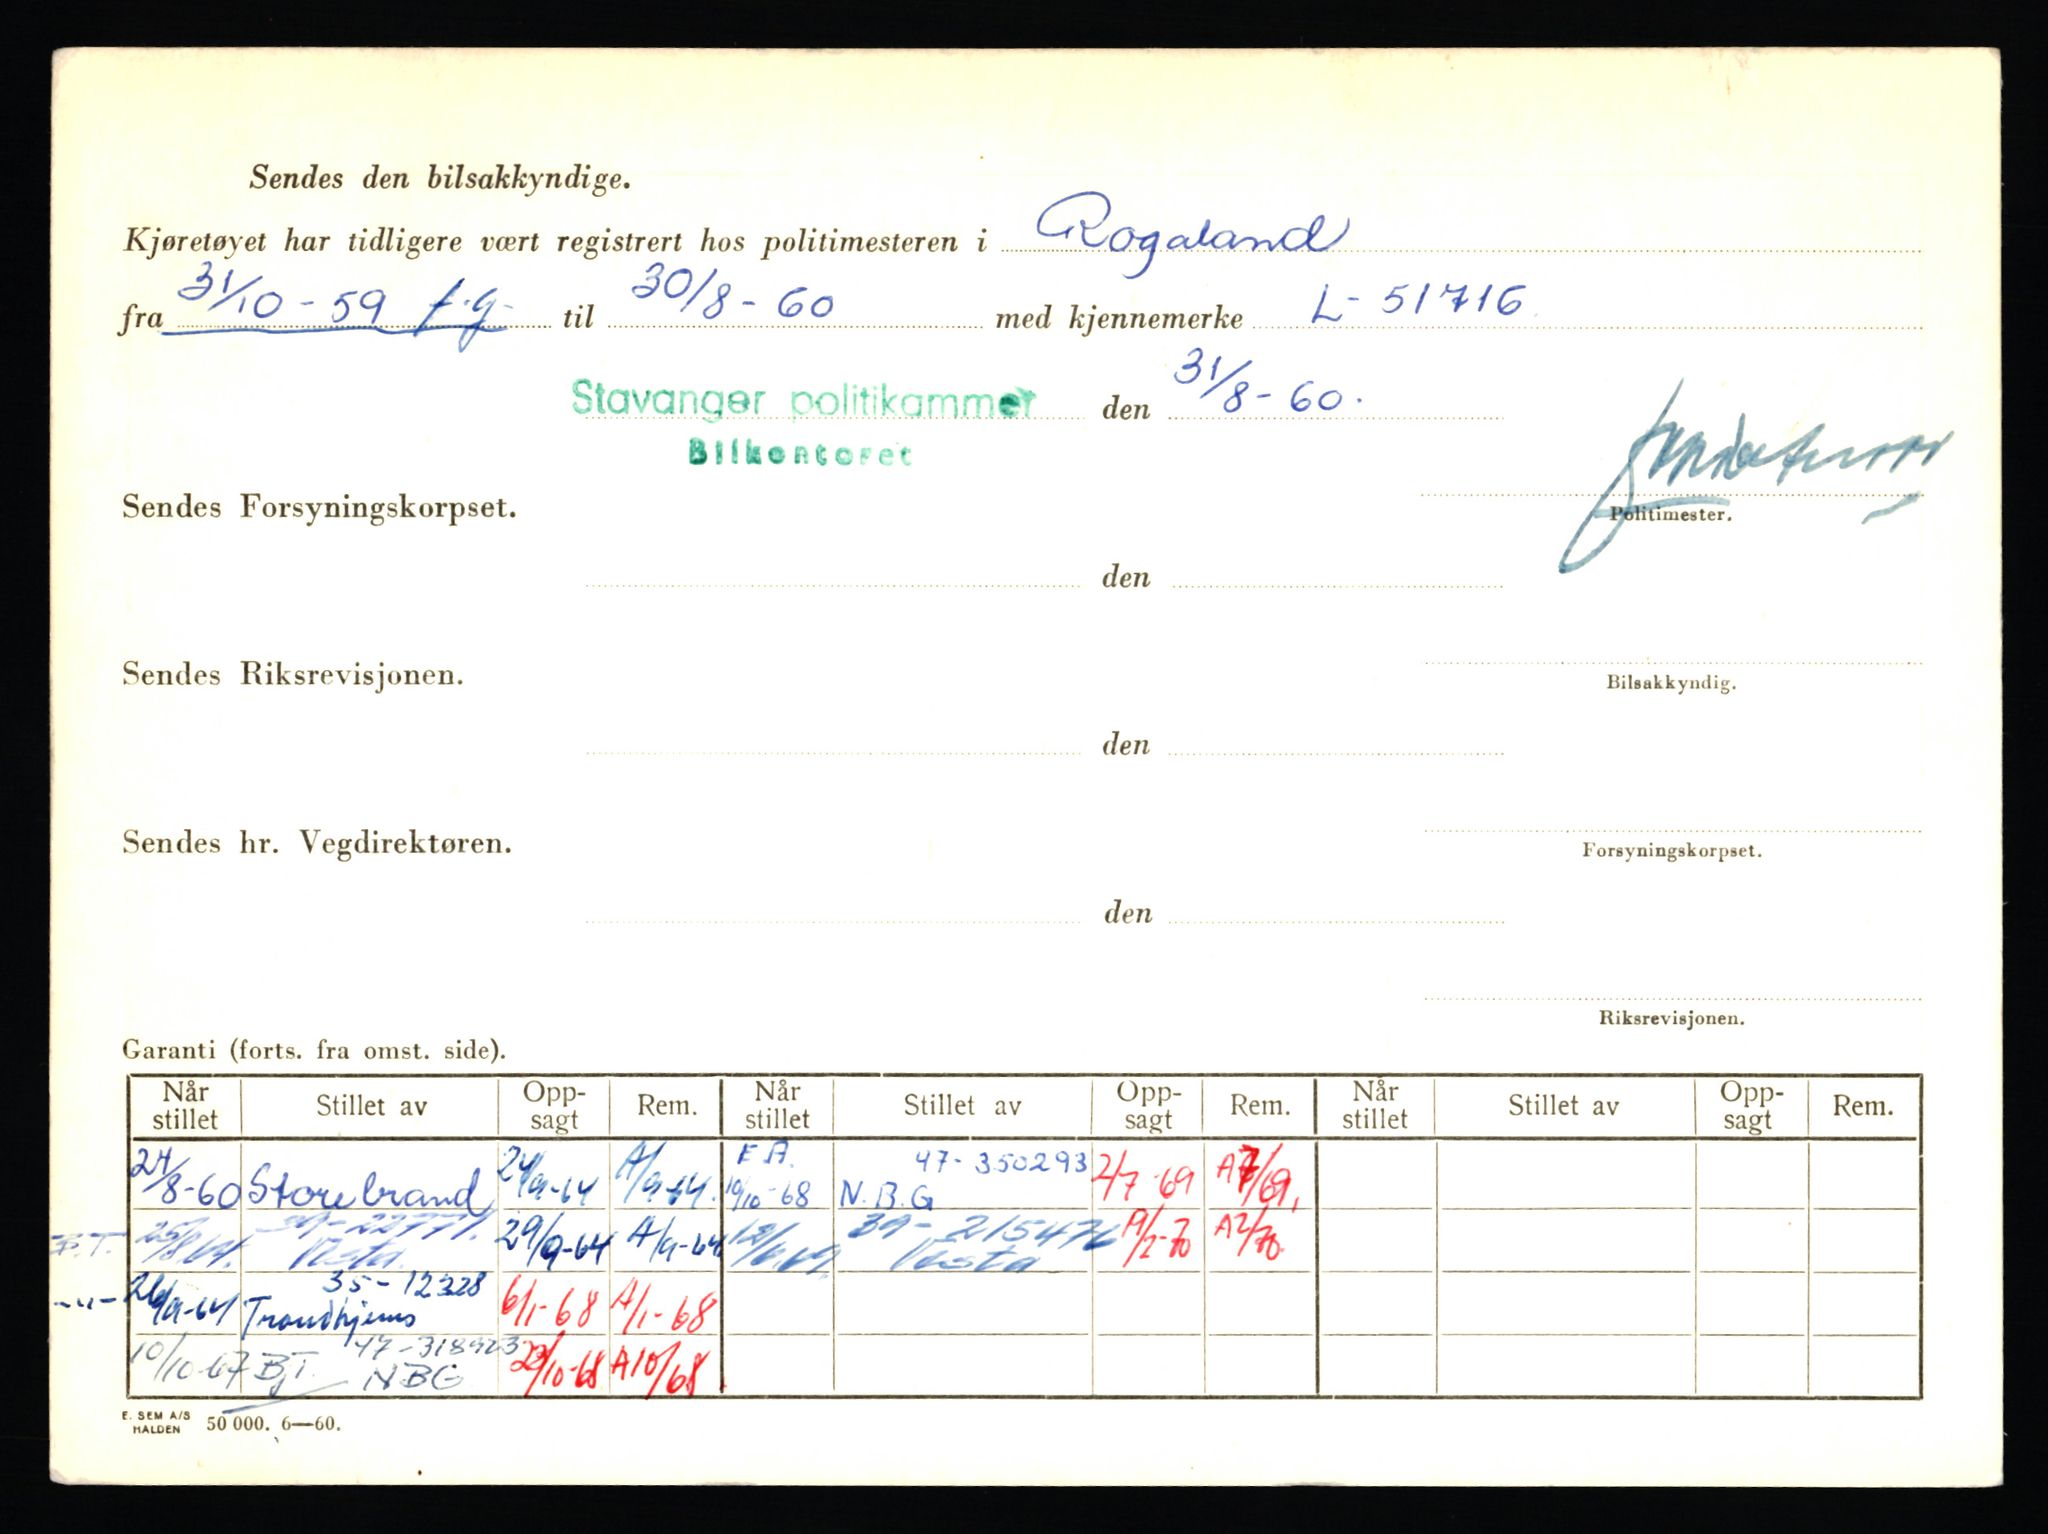 Sendes den bilsakkyndige.
Kjøretøyet har tidligere vært registrert hos politimesteren i Rogaland
fra 31/10-59 f.g. til 30/8-60 med kjennemerke L-51716
Stavanger politikammer den 31/8-60.
Bilkontoret
Sendes Forsyningskorpset.
Politimester.
den
Sendes Riksrevisjonen.
Bilsakkyndig.
den
Sendes hr. Vegdirektøren.
Forsyningskorpset.
den
Riksrevisjonen.
Garanti (forts. fra omst. side).
Når stillet Stillet av Opp-sagt Rem. Når stillet Stillet av Opp-sagt Rem. Når stillet Stillet av Opp-sagt Rem.
24/8-60 Storebrand 24/9-64 A/9-64. E.A. 10/10-68 47-350293 N.B.G 2/7-69 A7/69,
B.T. 25/8.64. Vesta. 29/9-64 A/9-64 39-215476 Vesta 19/2-70 A2/70.
-"- 26/9-64 35-12328 Trondhjems 6/1-68 A/1-68
10/10-67 B.T. 47-318923 NBG 23/10-68 A10/68
E. SEM A/S HALDEN 50 000. 6—60.